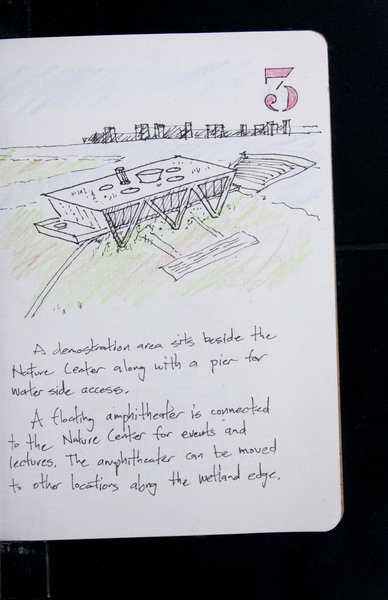 3
A demostration area sits beside the
Nature Center along with a pier for
water side access.
A floating amphitheater is connected
to the Nature Center for events and
lectures. The amphitheater can be moved
to other locations along the wetland edge.